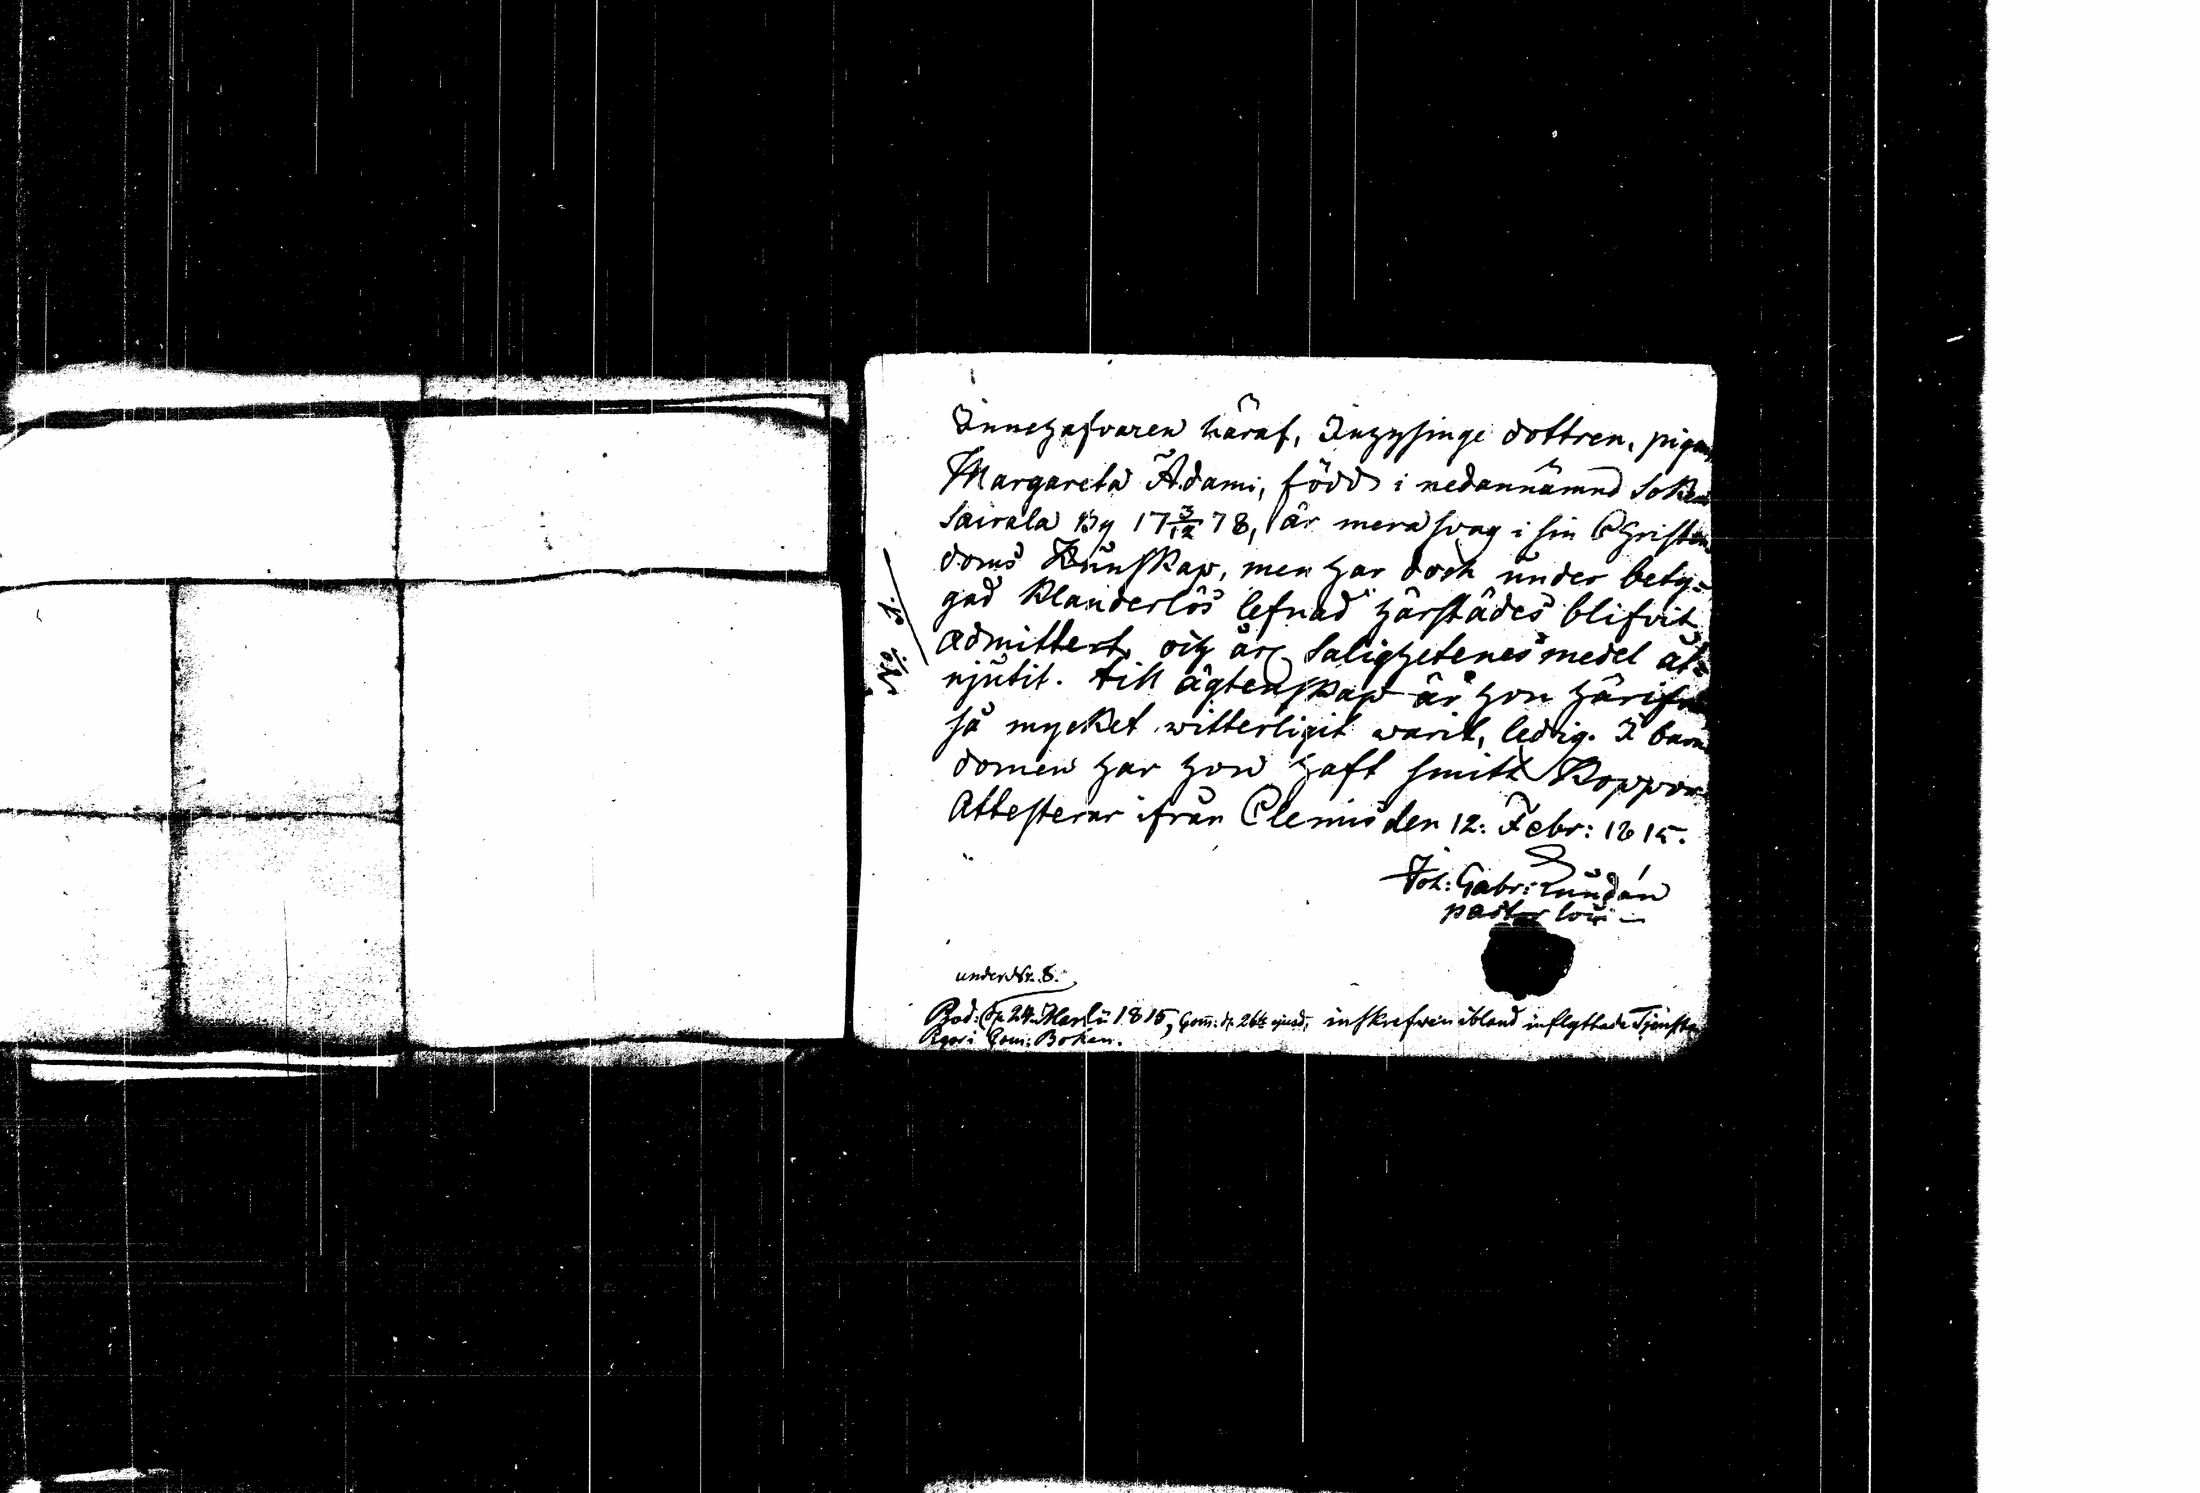 Innehafvaren häraf, Inhysinge dottren, pigan
Margareta Adami, född i nedannämnd Soken
Sairala By 17 3/12 78, är mera svag i sin Christen
doms Kunskap, men har dock under bety-
gad klanderlös lefnad härstädes blifvit
admittert, och är Salighetenes medel åt-
njutit. till ägtenskap är hon härifrån
så mycket witterligit warit, ledig. I barn
domen har hon haft smitt Koppor
Attesterar ifrån Clemis den 12: Febr: 1815.
Joh: Gabr: Lundán
pastor loci
N:o 10
under N:r 8.
Prod: d. 24 Martii 1815, Com: d. 26 ejusd, inskrefven ibland inflyttade Tjenste
Com: Boken.